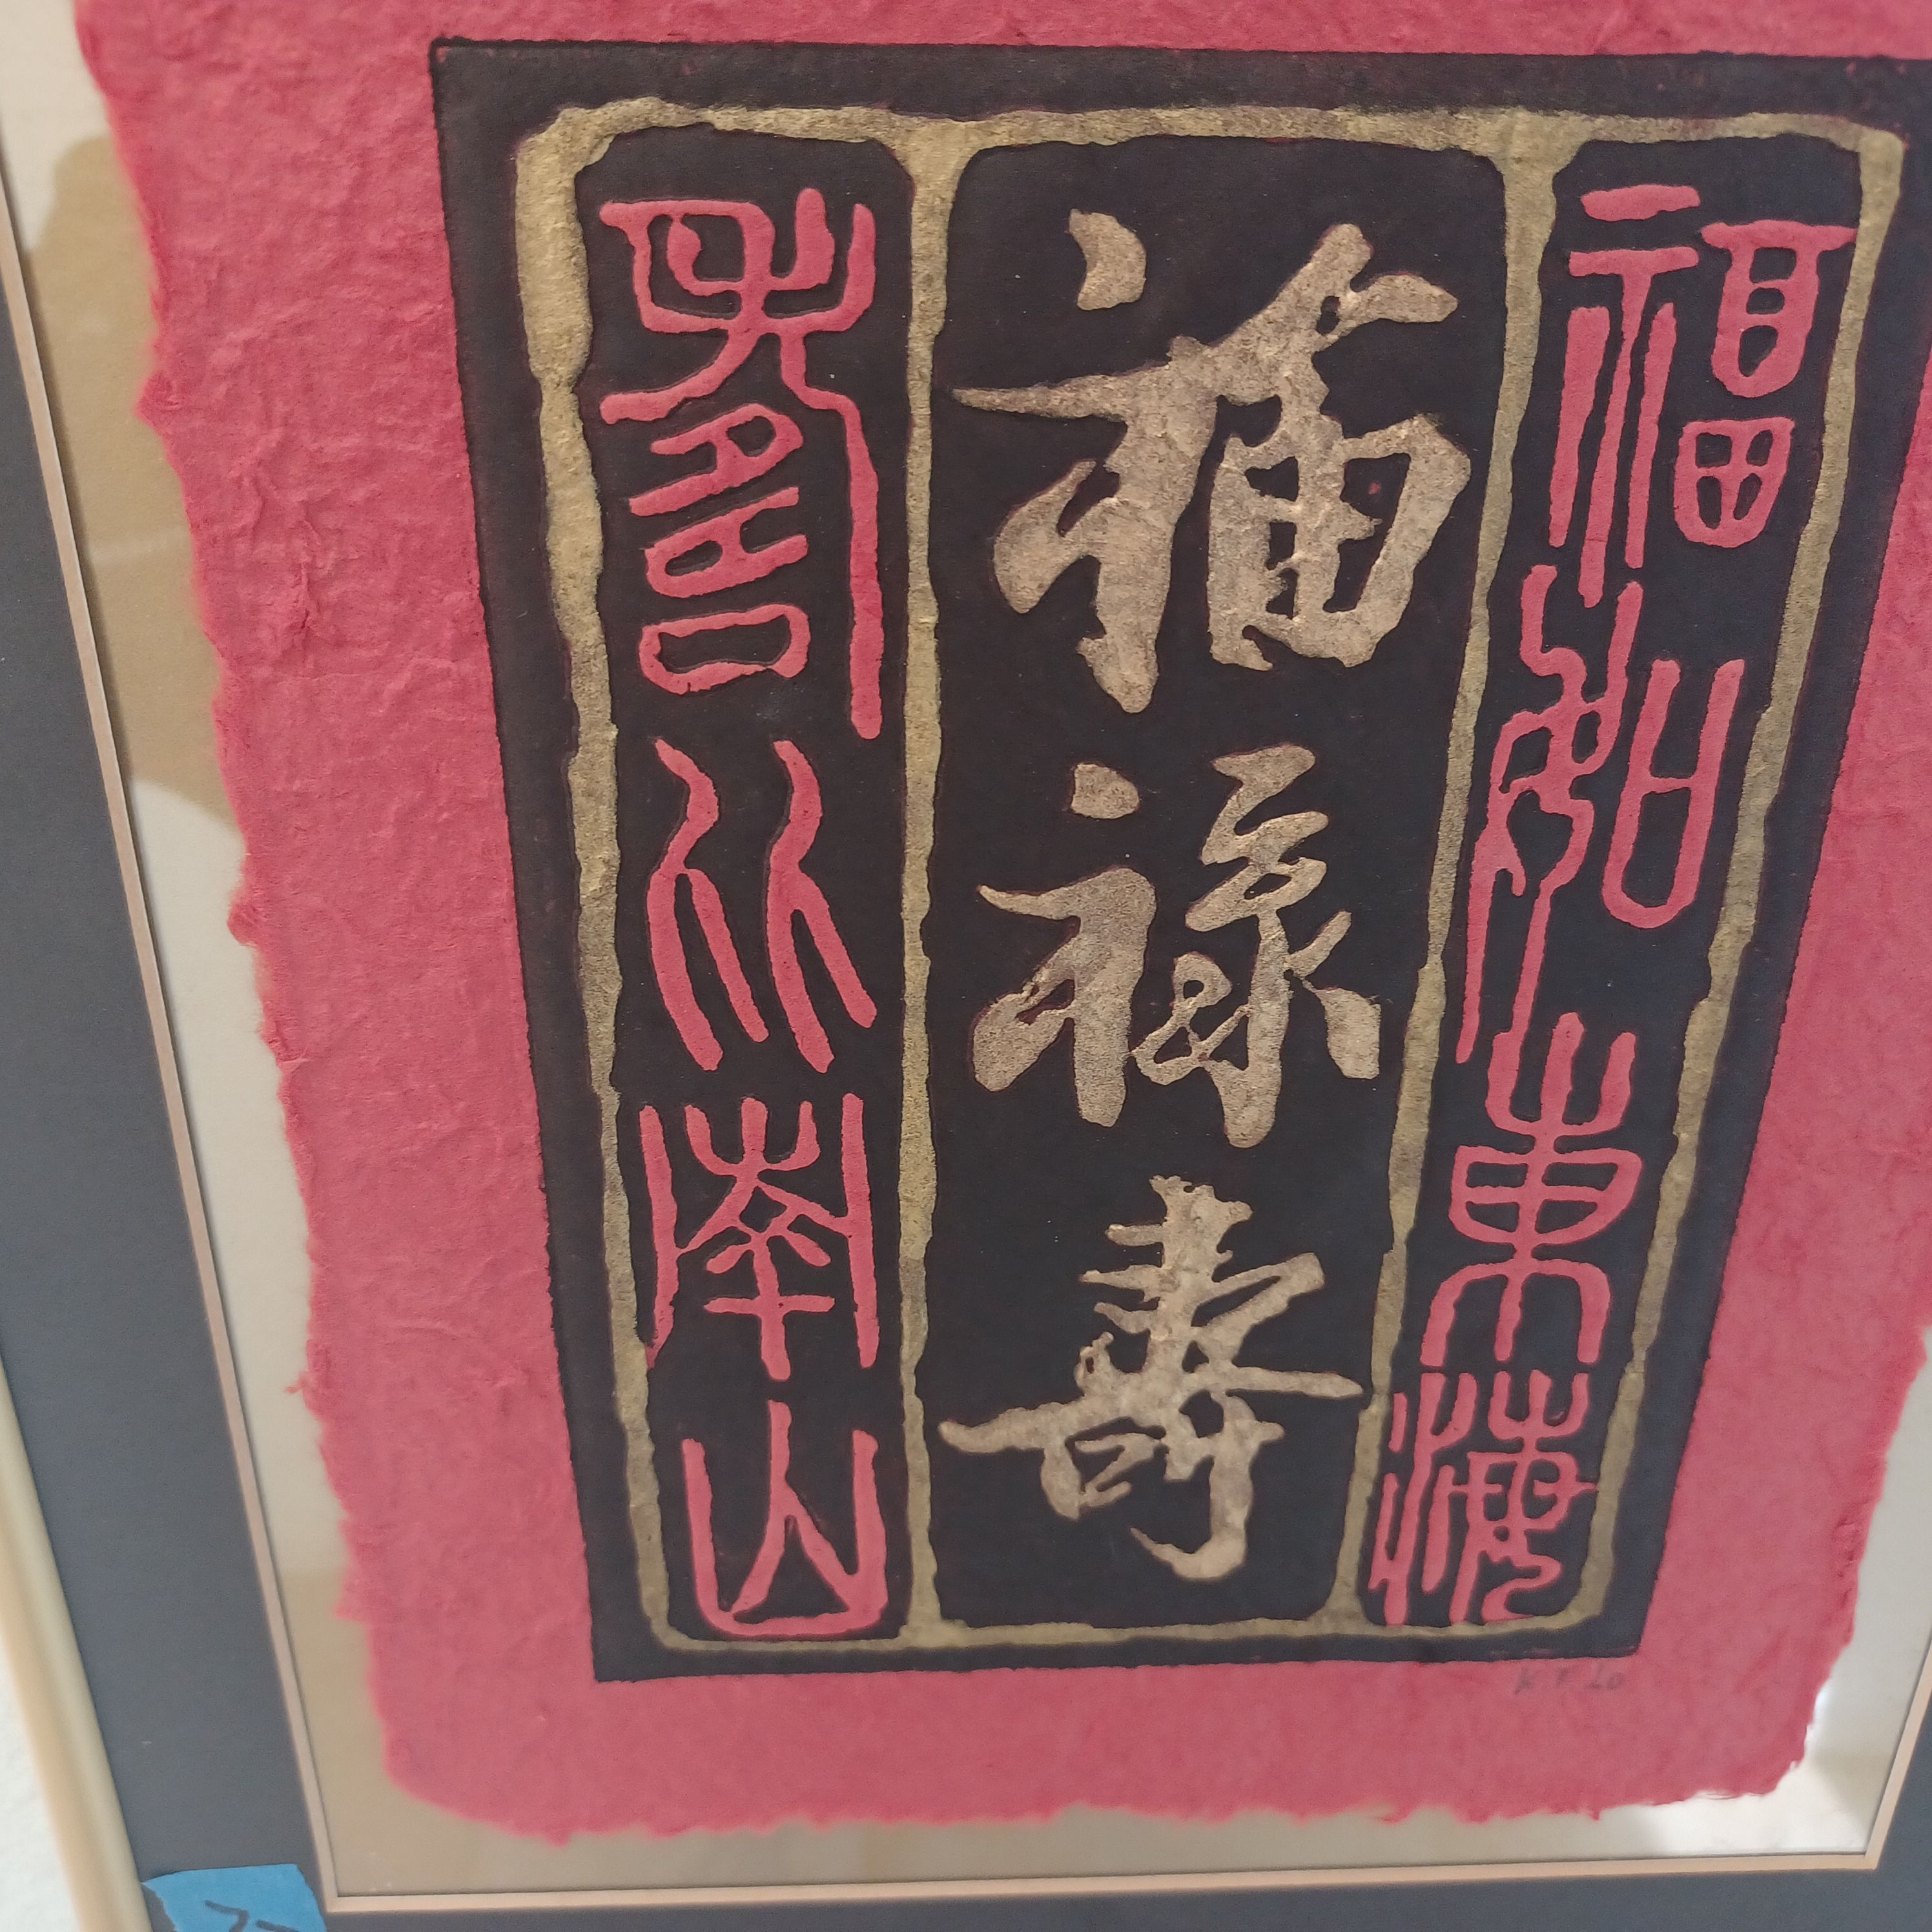 福如東海
福祿壽
壽比南山
K F Lo